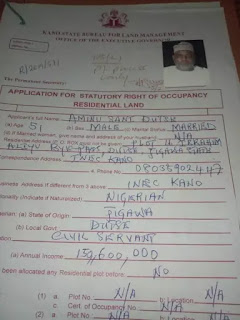 KANO STATE BUREAU FOR LAND MANAGEMENT
OFFICE OF THE EXECUTIVE GOVERNOR
The Permanent Secretary
APPLICATION FOR STATUTORY RIGHT OF OCCUPANCY
RESIDENTIAL LAND
Applicant's full Name AMINU SANI DUTSE
(a) Age 51 (b) Sex MALE (c) Marital Status MARRIED
If Married woman, give name and address of your husband N/A
PLOT 12 IBRAHIM
ALIYU BYE PASS DUTSE JIGAWA STATE
Correspondence Address INEC KANO
Phone No 08035902447
Business Address if different from 3 above INEC KANO
Nationality (Indicate if Naturalized) NIGERIAN
(a) State of Origin JIGAWA
(b) Local Govt DUTSE
CIVIL SERVANT
(a) Annual Income 150,600,000
been allocated any Residential plot before NO
(1) a. Plot No N/A b. Location N/A
c. Cert. of Occupancy No N/A
(2) a. Plot No N/A b. Location N/A